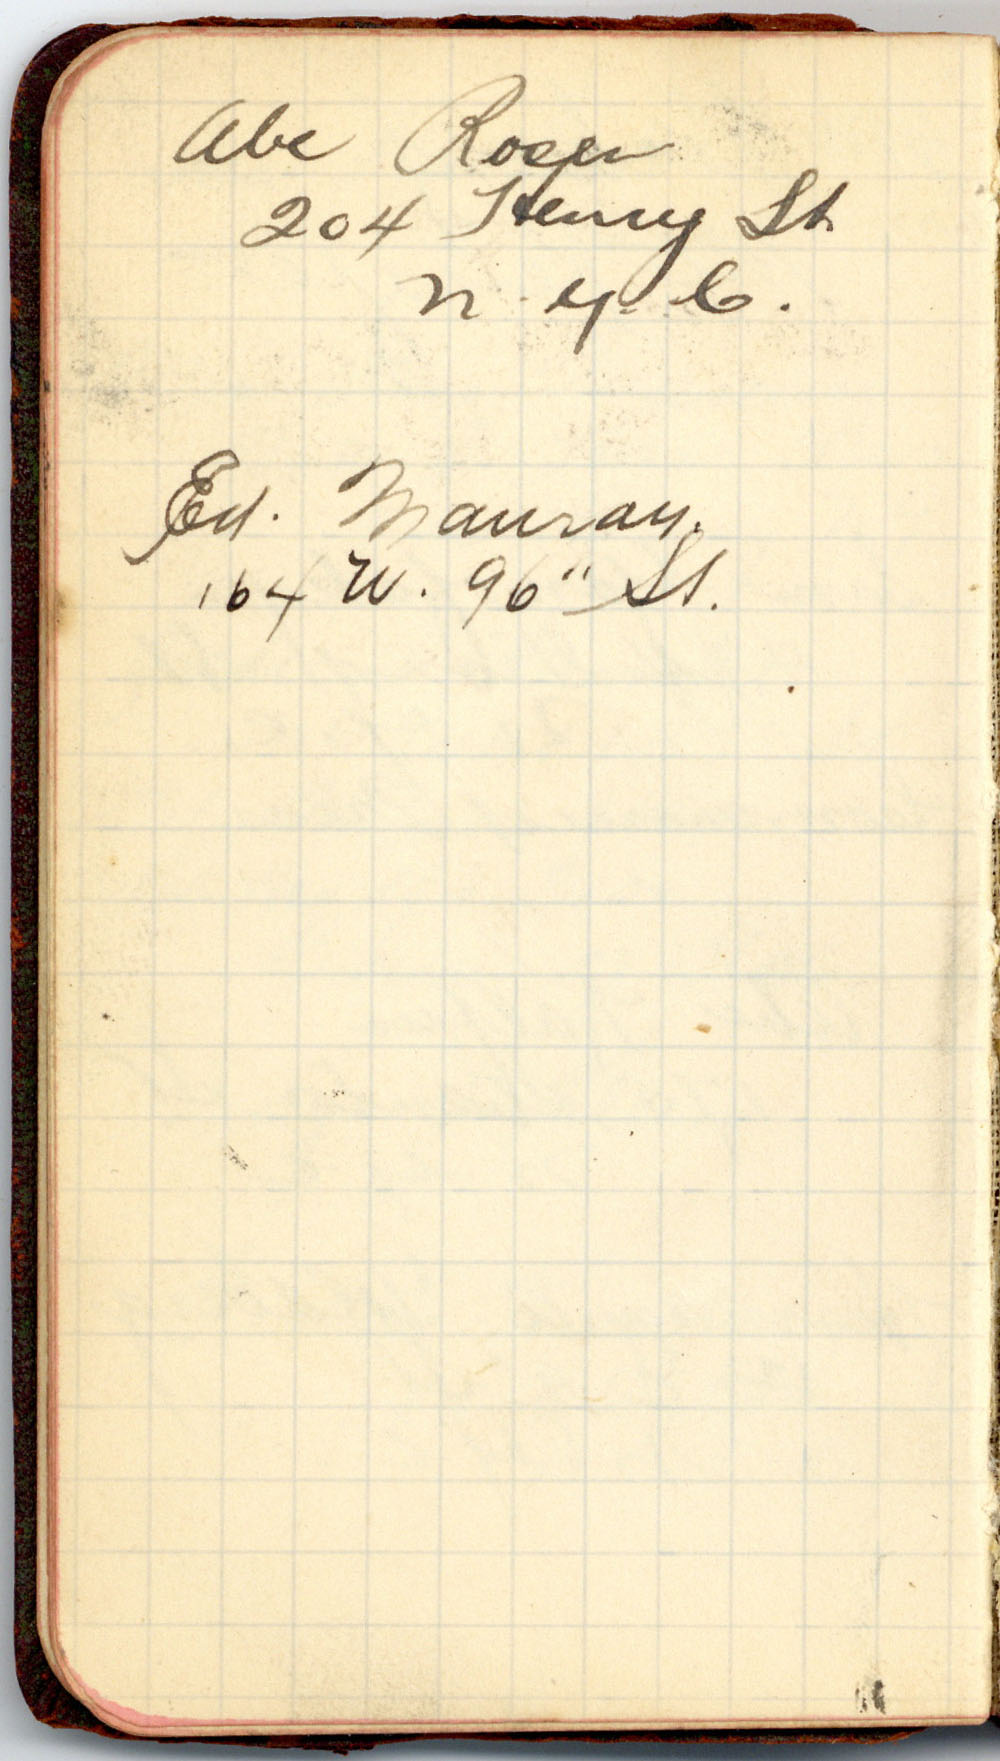 Abe Rosen
204 Henry St.
N. Y. C.
Ed. Mauray.
164 W. 96" St.